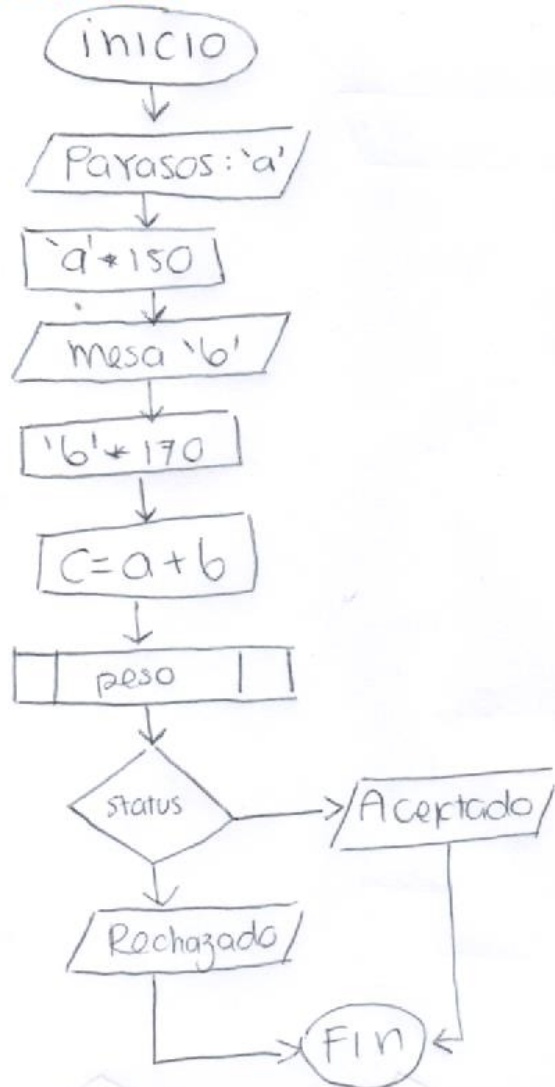 inicio
Parasos: 'a'
'a' * 150
mesa 'b'
'b' * 170
C = a + b
peso
status
Aceptado
Rechazado
Fin